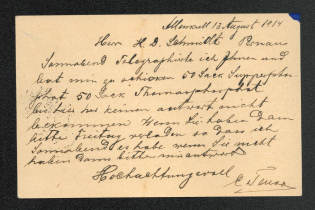 Allenrett 13 August 1914
Herr H. D. Schmidt Ronau
Sonnabend Telegraphirte ich Ihnen und
bat mir zu schicken 50 Sack Supperphos
phat 50 Sack Thomasphosphat
bis hir keinen antwort nicht
bekommen Wenn Sie haben Dann
bitte Freitag verladen so dass ich
Sonnabend es habe wenn Sie nicht
haben Dann bitte umantwort
Hochachtungsvoll